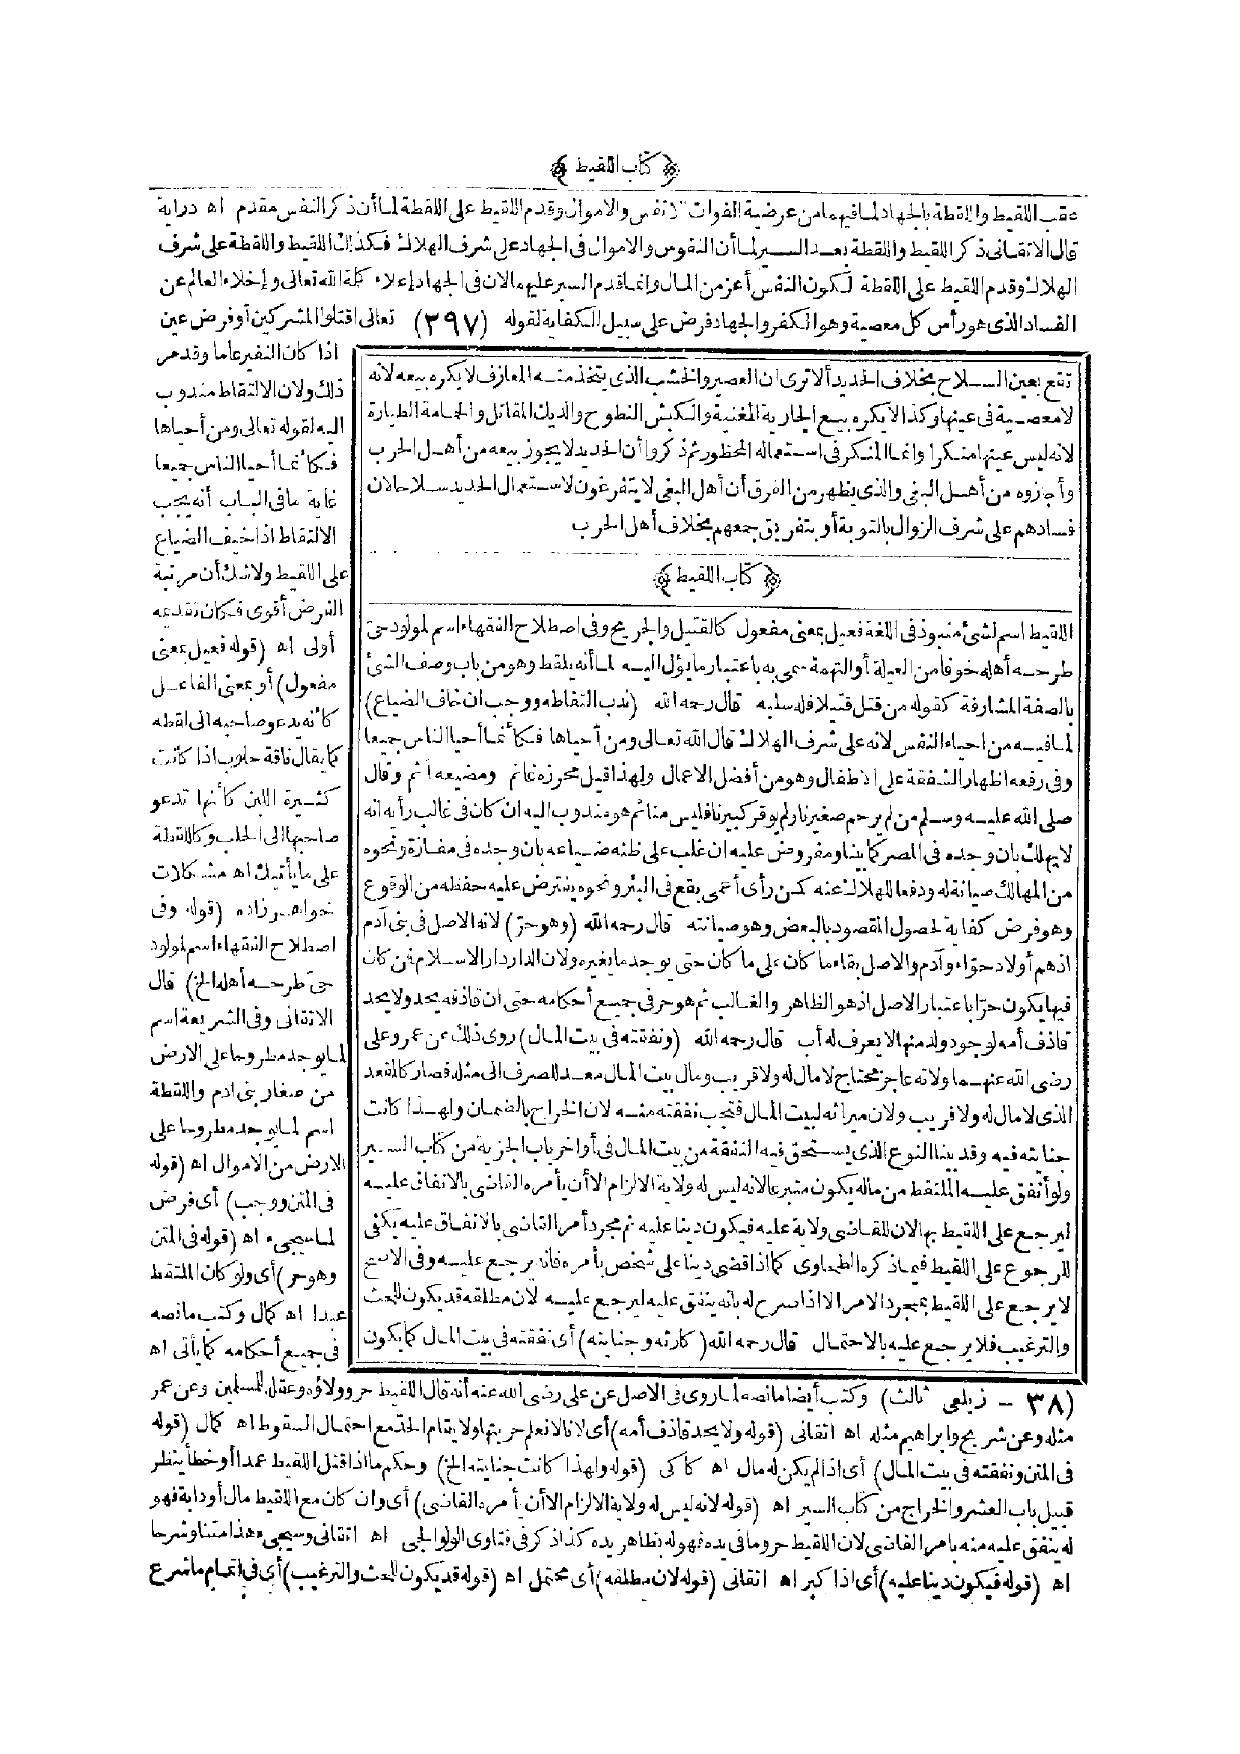 ﴿ كتاب اللقيط ﴾
عقب اللقيط واللقطة بالجهاد لما فيهما من عرضية الفوات للانفس والاموال وقدم اللقيط على اللقطة لما أن ذكر النفس مقدم اه دراية
قال الاتقانى ذكر اللقيط واللقطة بعد السير لما أن النفوس والاموال فى الجهاد على شرف الهلاك فكذلك اللقيط واللقطة على شرف
الهلاك وقدم اللقيط على اللقطة لكون النفس أعز من المال وانما قدم السير عليهما لان فى الجهاد إعلاء كلة الله تعالى وإخلاء العالم عن
الفساد الذى هو رأس كل معصية وهو الكفر والجهاد فرض على سبيل الكفاية لقوله (٢٩٧) تعالى اقتلوا المشركين أو فرض عين
اذا كان النفير عاما وقد مر
ذلك ولان الالتقاط مندوب
اليه لقوله تعالى ومن أحياها
فكأنما أحيا الناس جميعا
غاية ما فى الباب أنه يجب
الالتقاط اذا خيف الضياع
على اللقيط ولا شك أن مرتبة
الفرض أقوى فكان تقديمه
أولى اه (قوله فعيل بمعنى
مفعول) أو بمعنى الفاعل
كأنه يدعو صاحبه الى لقطه
كما يقال ناقة حلوب اذا كانت
كثيرة اللبن كأنها تدعو
صاحبها الى الحلب وكاللقطة
على ما يأتيك اه مشكلات
خواهر زاده (قوله وفى
اصطلاح الفقهاء اسم لمولود
حى طرحه أهله الخ) قال
الاتقانى وفى الشريعة اسم
لما يوجد مطروحا على الارض
من صغار بنى ادم واللقطة
اسم لما يوجد مطروحا على
الارض من الاموال اه (قوله
فى المتن ووجب) أى فرض
لما سيجىء اه (قوله فى المتن
وهو حر) أى ولو كان الملتقط
عبدا اه كمال وكتب مانصه
فى جميع أحكامه كما يأتى اه
تقع بعين السلاح بخلاف الحديد ألا ترى ان العصير والخشب الذى يتخذ منه المعازف لا يكره بيعه لانه
لا معصية فى عينها وكذا لا يكره بيع الجارية المغنية والكبش النطوح والديك المقاتل والحمامة الطيارة
لانه ليس عينها منكرا وانما المنكر فى استعماله المحظور ثم ذكروا أن الحديد لا يجوز بيعه من أهل الحرب
وأجازوه من أهل البغى والذى يظهر من الفرق أن أهل البغى لا يتفرغون لاستعمال الحديد سلاحا لان
فسادهم على شرف الزوال بالتوبة أو بتفريق جمعهم بخلاف أهل الحرب
﴿ كتاب اللقيط ﴾
اللقيط اسم لشئ منبوذ فى اللغة فعيل بمعنى مفعول كالقتيل والجريح وفى اصطلاح الفقهاء اسم لمولود حى
طرحه أهله خوفا من العيلة أو التهمة سمى به باعتبار ما يؤل اليه لما أنه يلقط وهو من باب وصف الشئ
بالصفة المشارفة كقوله من قتل قتيلا فله سلبه قال رحمه الله (ندب التقاطه ووجب ان خاف الضياع)
لما فيه من احياء النفس لانه على شرف الهلاك قال الله تعالى ومن أحياها فكأنما أحيا الناس جميعا
وفى رفعه اظهار الشفقة على الاطفال وهو من أفضل الاعمال ولهذا قيل محرزه غانم ومضيعه آثم وقال
صلى الله عليه وسلم من لم يرحم صغيرنا ولم يوقر كبيرنا فليس منا ثم هو مندوب اليه ان كان فى غالب رأيه انه
لا يهلك بان وجده فى المصر كما بينا ومفروض عليه ان غلب على ظنه ضياعه بان وجده فى مفازة ونحوه
من المهالك صيانة له ودفعا للهلاك عنه كمن رأى أعمى يقع فى البئر ونحوه يفترض عليه حفظه من الوقوع
وهو فرض كفاية لحصول المقصود بالبعض وهو صيانته قال رحمه الله (وهو حر) لانه الاصل فى بنى آدم
اذهم أولاد حواء وآدم والاصل بقاء ما كان على ما كان حتى يوجد ما يغيره ولان الدار دار الاسلام فمن كان
فيها يكون حرا باعتبار الاصل اذ هو الظاهر والغالب ثم هو حر فى جميع أحكامه حتى ان قاذفه يحد ولا يحد
قاذف أمه لوجود ولد منها لا يعرف له أب قال رحمه الله (ونفقته فى بيت المال) روى ذلك عن عمر وعلى
رضى الله عنهما ولانه عاجز محتاج لا مال له ولا قريب ومال بيت المال معد للصرف الى مثله فصار كالمقعد
الذى لا مال له ولا قريب ولان ميراثه لبيت المال فتجب نفقته منه لان الخراج بالضمان ولهذا كانت
جنايته فيه وقد بينا النوع الذى يستحق فيه النفقة من بيت المال فى أواخر باب الجزية من كتاب السير
ولو أنفق عليه الملتقط من ماله يكون متبرعا لانه ليس له ولاية الالزام الا أن يأمره القاضى بالانفاق عليه
ليرجع على اللقيط بها لان للقاضى ولاية عليه فيكون دينا عليه ثم مجرد أمر القاضى بالانفاق عليه يكفى
للرجوع على اللقيط فيما ذكره الطحاوى كما اذا قضى دينا على شخص بأمره فانه يرجع عليه وفى الاصح
لا يرجع على اللقيط بمجرد الامر الا اذا صرح له بانه ينفق عليه ليرجع عليه لان مطلقه قد يكون للحث
والترغيب فلا يرجع عليه بالاحتمال قال رحمه الله (كارثه وجنايته) أى نفقته فى بيت المال كما يكون
(٣٨ - زيلعى ثالث) وكتب أيضا مانصه لما روى فى الاصل عن على رضى الله عنه أنه قال اللقيط حر وولاؤه وعقله للمسلمين وعن عمر
مثله وعن شريح وابراهيم مثله اه اتقانى (قوله ولا يحد قاذف أمه) أى لانا لا نعلم حريتها ولا يقام الحد مع احتمال السقوط اه كمال (قوله
فى المتن ونفقته فى بيت المال) أى اذا لم يكن له مال اه كاكى (قوله ولهذا كانت جنايته الخ) وحكم ما اذا قتل اللقيط عمدا أو خطأ ينظر
قبيل باب العشر والخراج من كتاب السير اه (قوله لانه ليس له ولاية الالزام الا أن يأمره القاضى) أى وان كان مع اللقيط مال أو دابة فهو
له ينفق عليه منه بامر القاضى لان اللقيط حر وما فى يده فهو له بظاهر يده كذا ذكر فى فتاوى الولوالجى اه اتقانى وسيجىء هذا متنا وشرحا
اه (قوله فيكون دينا عليه) أى اذا كبر اه اتقانى (قوله لان مطلقه) أى محتمل اه (قوله قد يكون للحث والترغيب) أى فى اتمام ما شرع